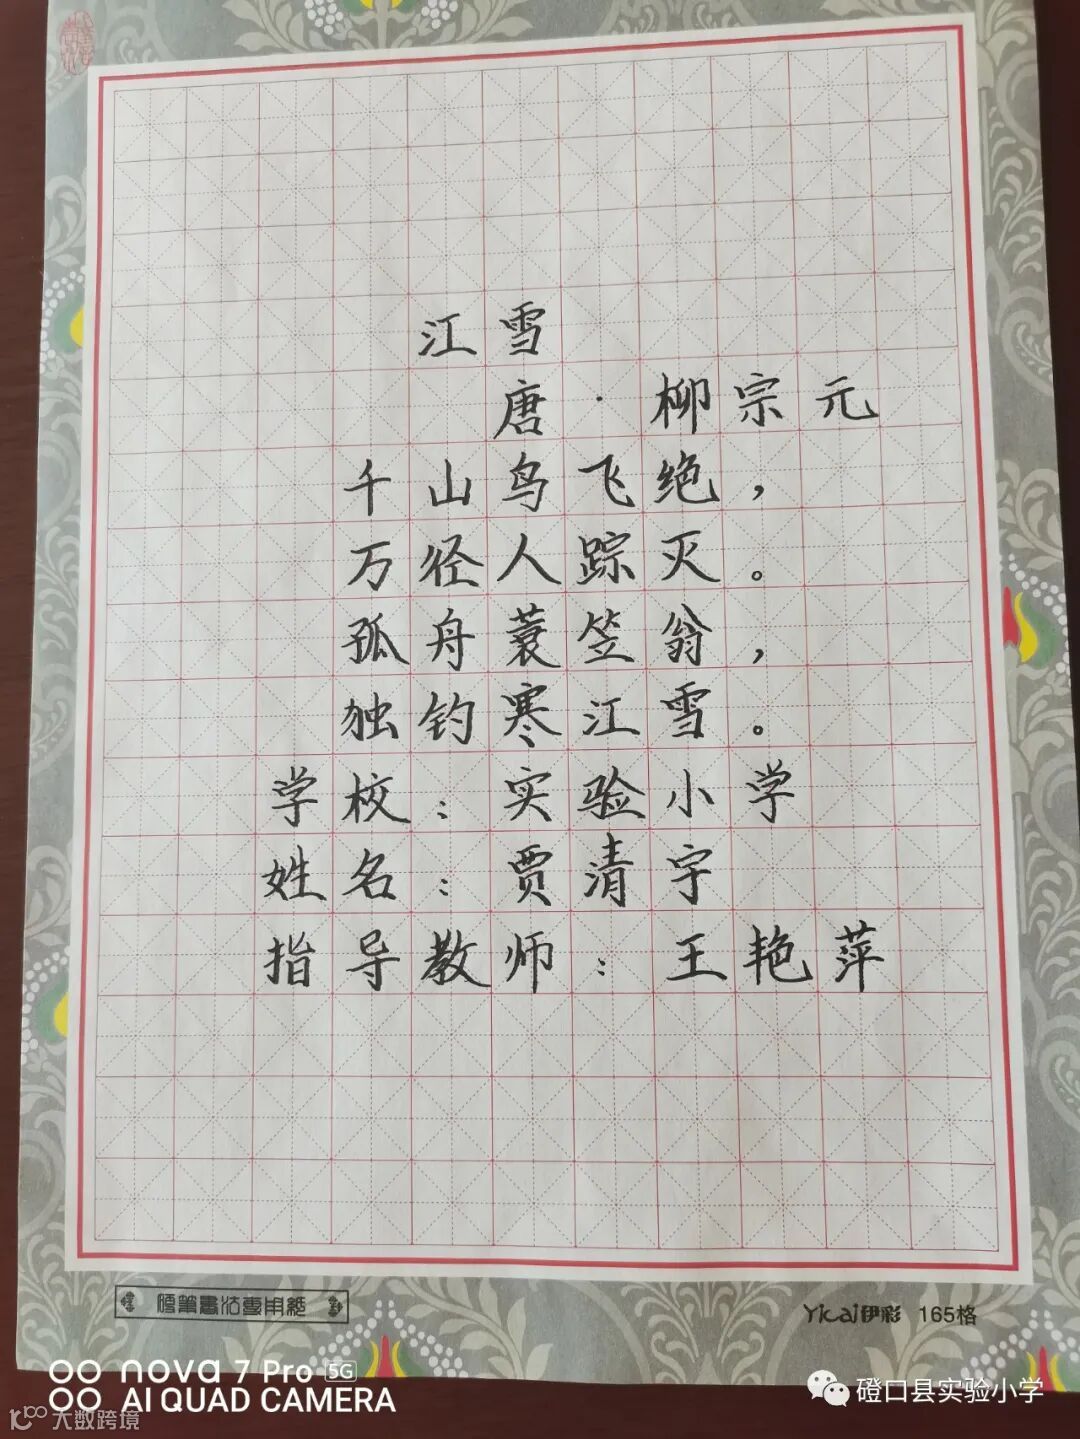 江雪
唐·柳宗元
千山鸟飞绝，
万径人踪灭。
孤舟蓑笠翁，
独钓寒江雪。
学校：实验小学
姓名：贾清宇
指导教师：王艳萍
硬笔书法专用纸
Yicai伊彩 165格
nova 7 Pro 5G
AI QUAD CAMERA
磴口县实验小学
大数跨境